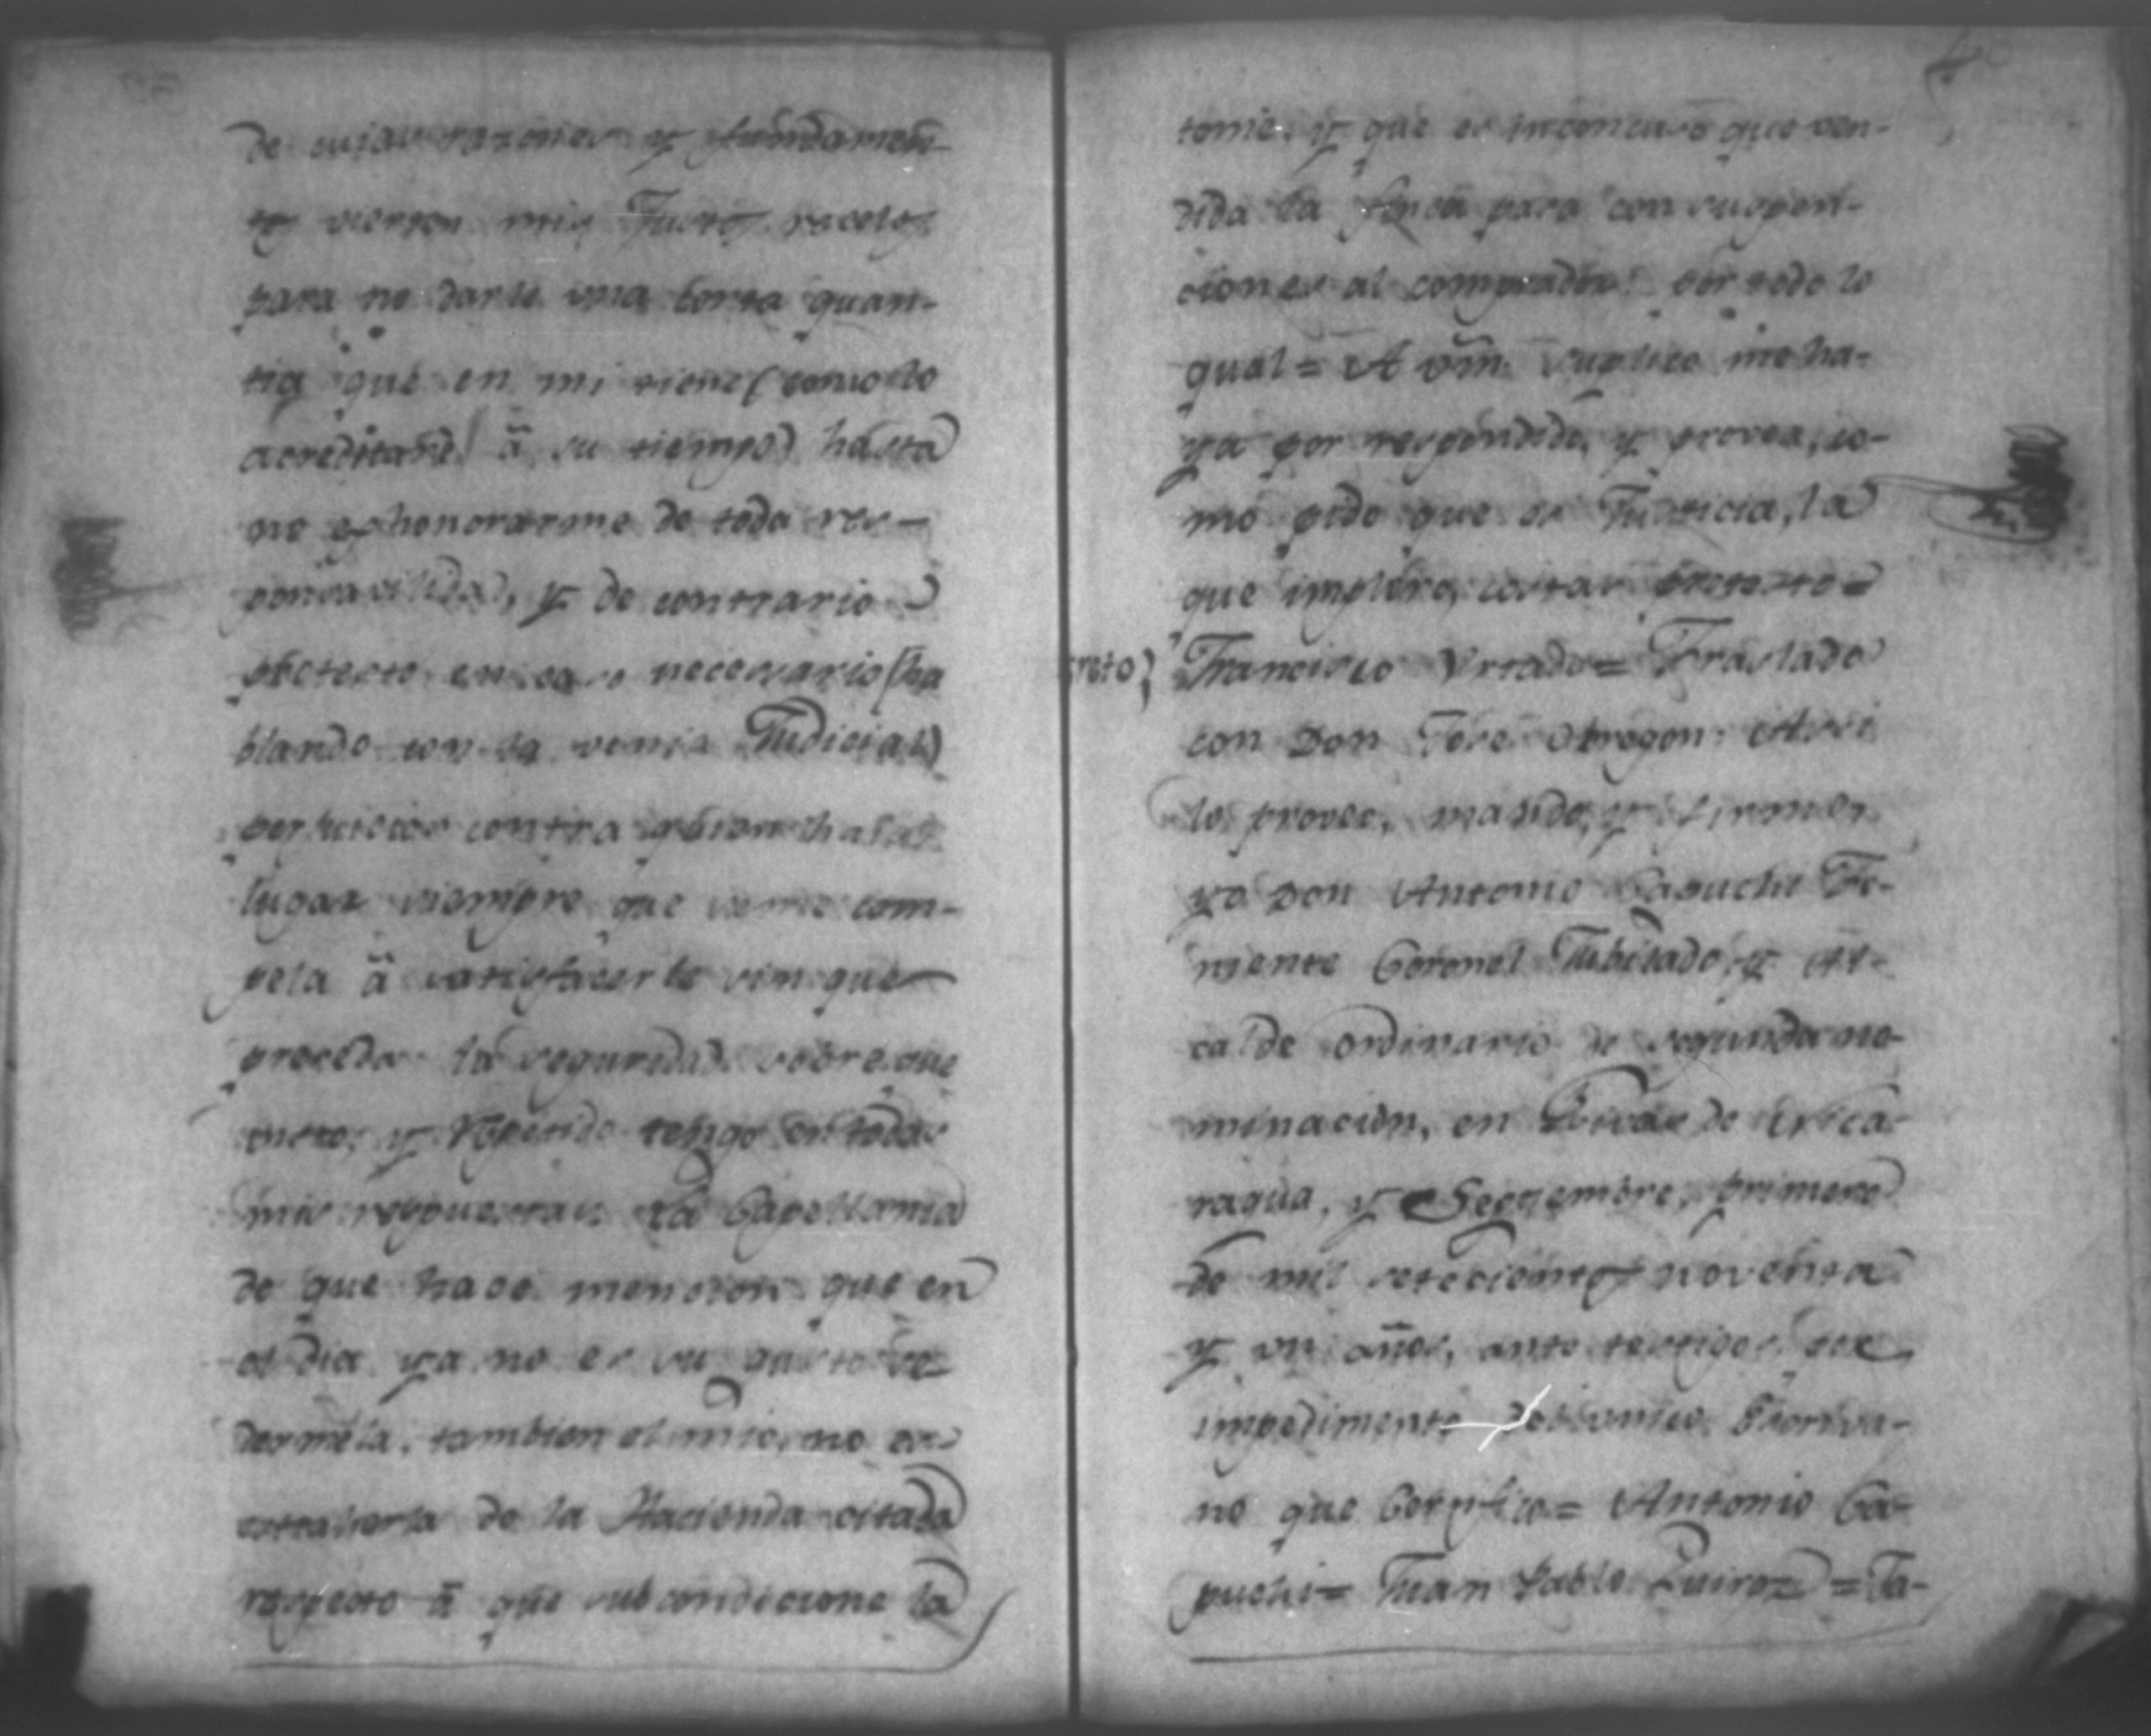 de cuias razones y fundamen-
tos vienen mis Justos recelos
para no darle una corta quan-
tia que en mi tiene (como lo
acreditaré á su tiempo) hasta
no exhonorarme de toda res-
ponsavilidad, y de contrario
protexto en caso necesario (ha
blando con la venia Judicial)
perjuicios contra quien haia
lugar siempre que se me com-
pela á satisfacerle sin que
preceda la seguridad sobre que
insto, y repetido tengo en todas
mis respuestas. La Capellania
de que hace mencion que en
el dia ya no es su gusto ce
dermela, tambien el mio, no es
extraherla de la Hacienda citada
respecto á que subcondicione la
tome. y que es inconcuso que ven-
dida la finca paso con supen-
ciones al comprador: por todo lo
qual = A Vm. suplico me ha-
ya por respondido, y provea, co-
mo pido que es Justicia, la
que imploro, costas protexto =
creto) Francisco Urtado = Traslado
con Don Jose Obregon. Assi
lo proveo, mando, y firmo
yo Don Antonio Capuchi Te-
niente Coronel Jubilado, y Al-
calde ordinario de segunda no-
minacion, en Rivas de Nica-
ragua, y Septiembre, primero
de mil setecientos noventa
y un años, ante testigos por
impedimento del unico Escriva-
no que Certifico = Antonio Ca-
puchi = Juan Pablo Quiroz = Ja-